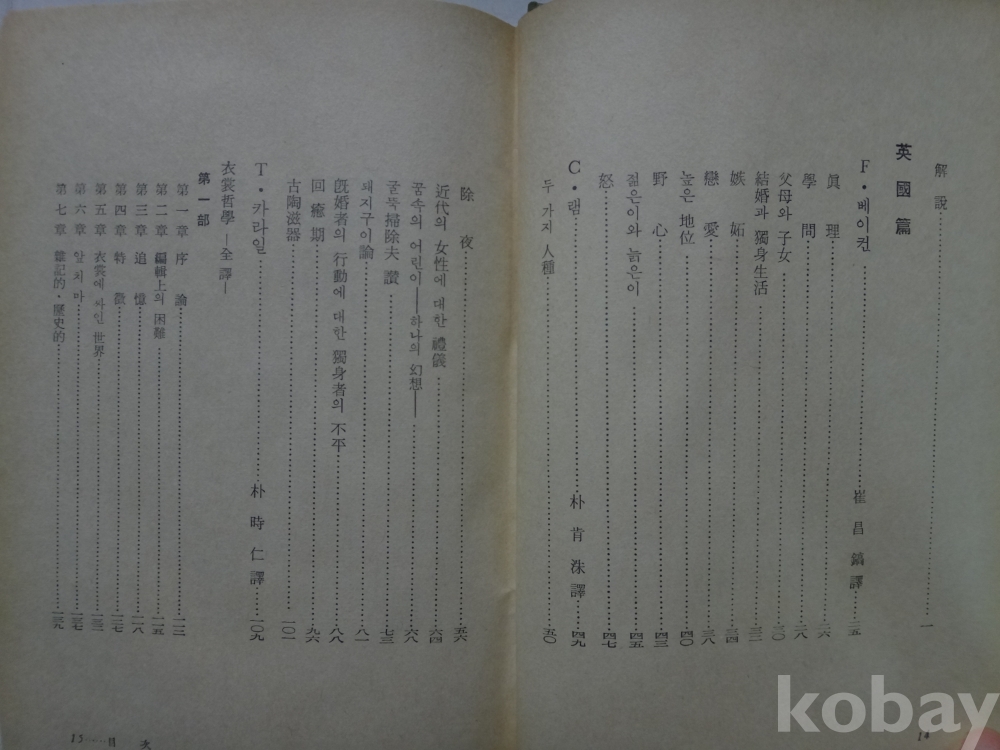 解説 一
英國篇
F·베이컨 崔昌鎬譯 二五
眞理 二六
學問 二八
父母와 子女 三〇
結婚과 獨身生活 三二
嫉妬 三四
戀愛 三八
높은 地位 四〇
野心 四三
젊은이와 늙은이 四五
怒 四七
C·램 朴肯洙譯 四九
두 가지 人種 五〇
14
除夜 五六
近代의 女性에 대한 禮儀 六四
꿈속의 어린이——하나의 幻想—— 六八
굴뚝掃除夫 讃 七三
돼지구이論 八一
旣婚者의 行動에 대한 獨身者의 不平 八八
回癒期 九六
古陶滋器 一〇一
T·카라일 朴時仁譯 一〇九
衣裳哲學 —全譯—
第一部
第一章 序論 一一三
第二章 編輯上의 困難 一一五
第三章 追憶 一一八
第四章 特徵 一二七
第五章 衣裳에 싸인 世界 一三二
第六章 앞치마 一三七
第七章 雜記的·歷史的 一三九
15……目 次
kobay